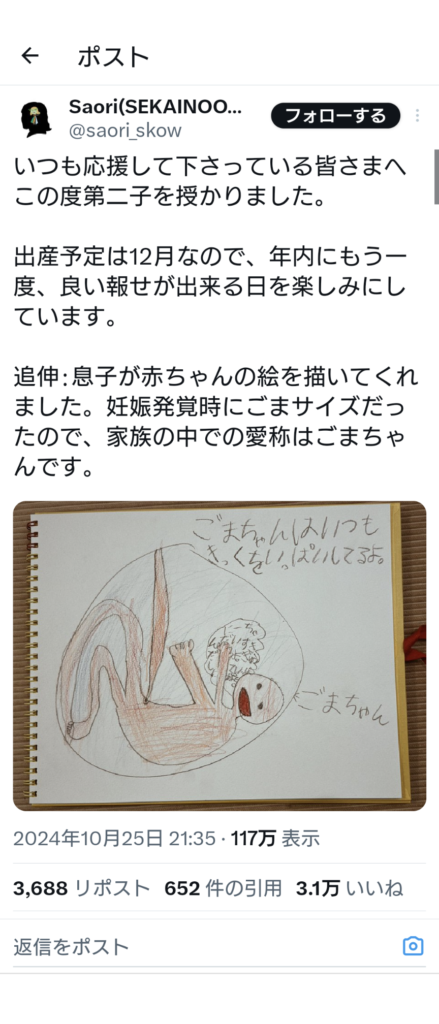 ポスト
Saori(SEKAINOO...
フォローする
@saori_skow
いつも応援して下さっている皆さまへ
この度第二子を授かりました。
出産予定は12月なので、年内にもう一
度、良い報せが出来る日を楽しみにし
ています。
追伸:息子が赤ちゃんの絵を描いてくれ
ました。妊娠発覚時にごまサイズだっ
たので、家族の中での愛称はごまちゃ
んです。
ごまちゃんはいつも
きっくをいっぱいしてるよ。
ごまちゃん
2024年10月25日 21:35 · 117万 表示
3,688 リポスト 652 件の引用 3.1万 いいね
返信をポスト